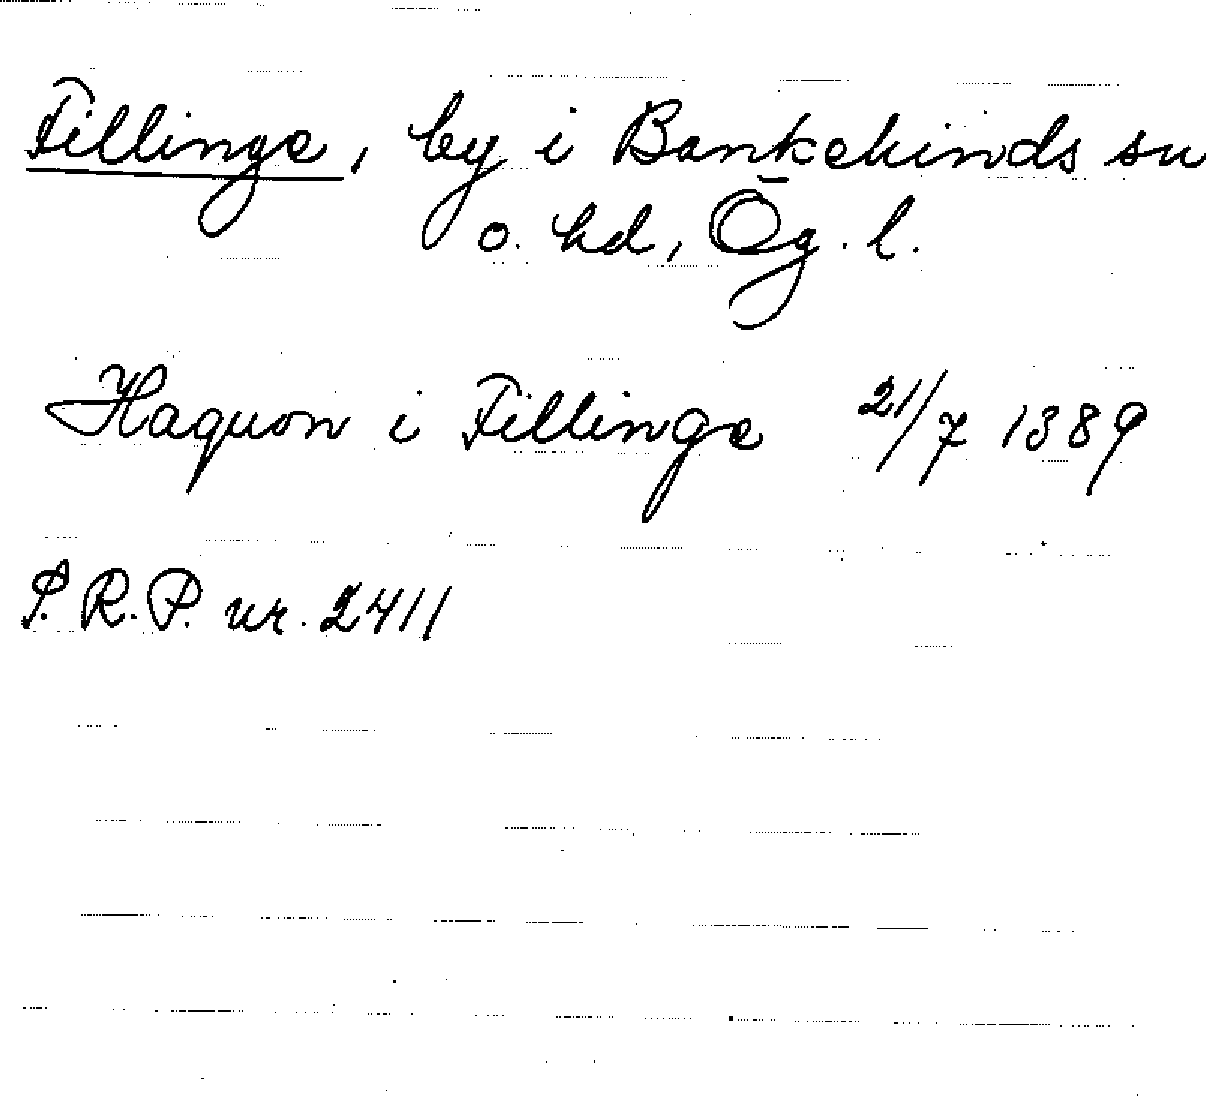 Fillinge, by i Bankekinds sn
o. hd, Ög. l.
Haquon i Fillinge 21/7 1389
S. R. P. nr. 2411